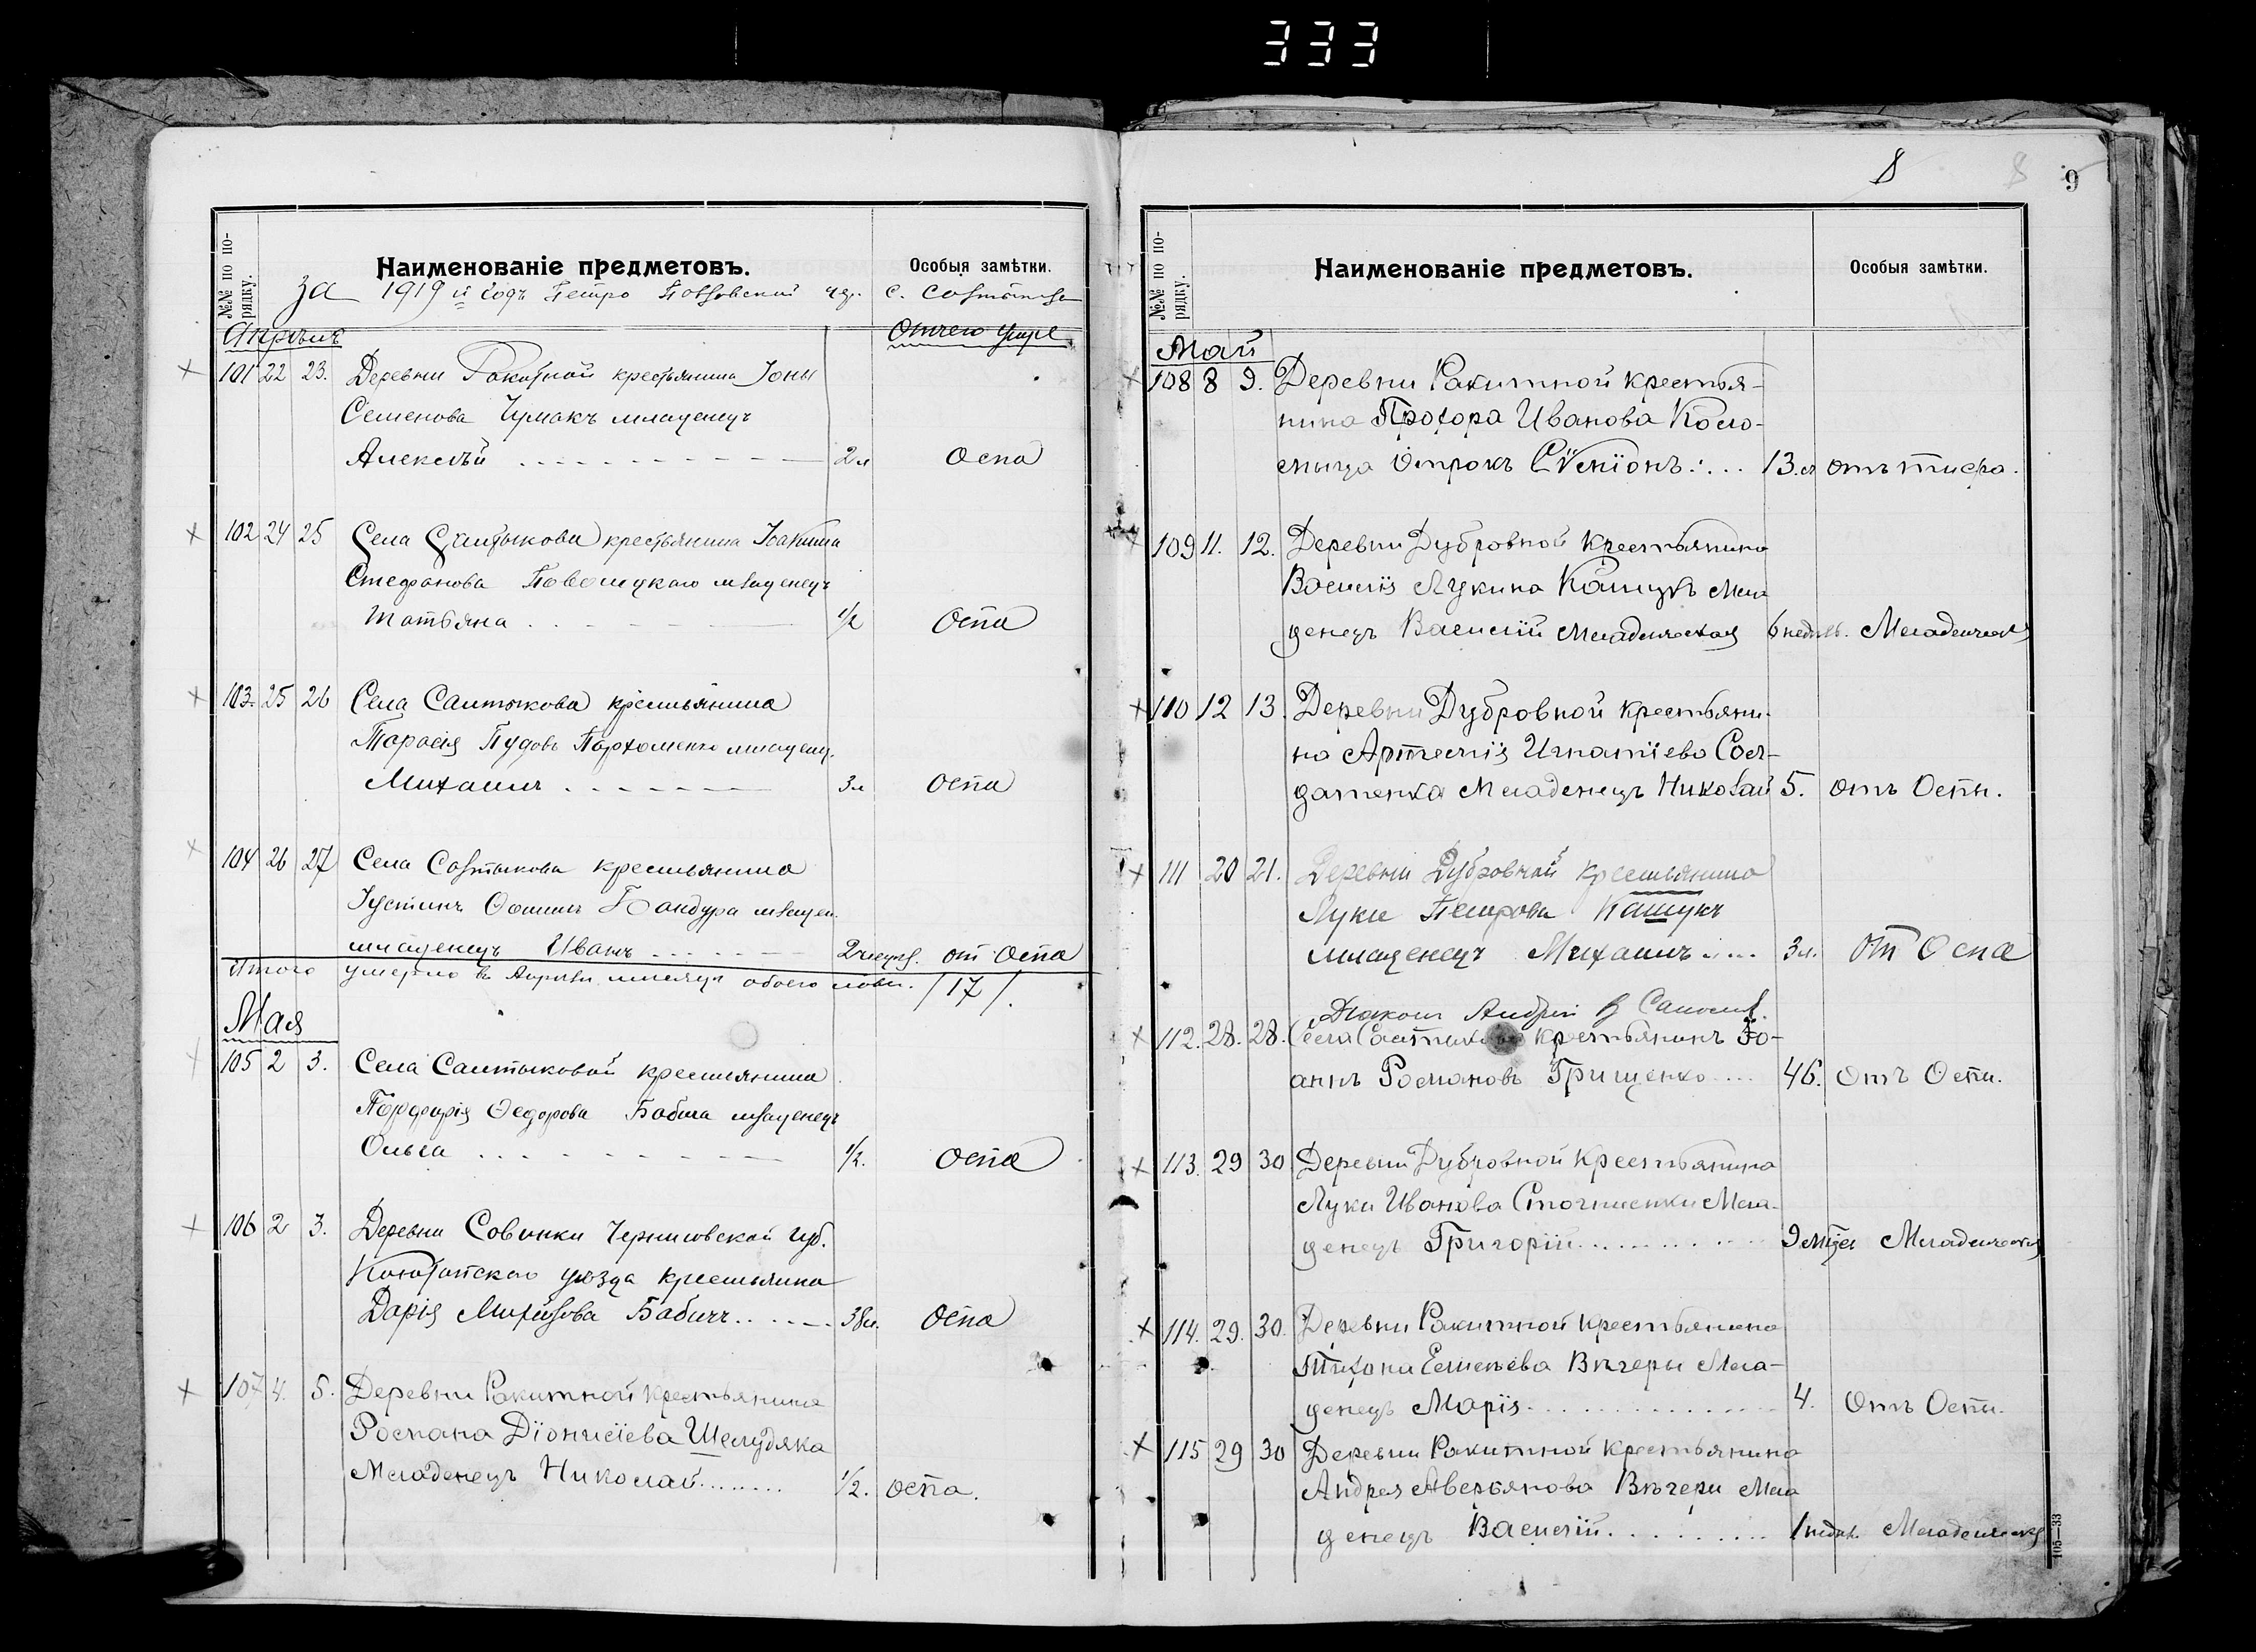 333
№№ по порядку.
Наименованіе предметовъ.
Особыя замѣтки.
За 1919 й годъ Петро Павловской с. Салтыкова
Апрѣль
Отчего умре
101 22 23. Деревни Ракитной крестьянина Іоны
Семенова Чумакъ младенецъ
Алексѣй 2 л Оспа
102 24 25 Села Салтыкова крестьянина Іоакима
Стефанова младенецъ
Татьяна 1/2 Оспа
103. 25 26 Села Салтыкова крестьянина
Тарасія Пархоменко младенец.
Михаилъ 3 л Оспа
104 26 27 Села Салтыкова крестьянина
Іустинъ Бандура младен.
младенецъ Иванъ от Оспа
Итого умерло въ Апрѣли мѣсяцѣ обоего пола. /17/.
Мая
105 2 3. Села Салтыковой крестьянина
Порфирія Ѳедорова Бабича младенецъ
Ольга 1/2. Оспа
106 2 3. Деревни Совинки Черниговской губ.
Конотопского уѣзда крестьянка
Дарія Бабичъ 38 л. Оспа
107 4. 5. Деревни Ракитной крестьянина
Романа Діонисіева Шелудяка
Младенецъ Николай 1/2. оспа.
8 8 9
№№ по порядку.
Наименованіе предметовъ.
Особыя замѣтки.
Май
108 8 9. Деревни Ракитной крестья-
нина Прохора Иванова Коло-
мыца Отрокъ 13 л отъ тифа.
109 11. 12. Деревни Дубровной Крестьянина
Василія Лукина Кашукъ Мла
денецъ Василій Младенческая 6 недѣль. Младенческ
110 12 13. Деревни Дубровной Крестьяни-
на Артемія Игнатіева Сол-
датенка Младенецъ Николай 5. отъ Оспы.
111 20 21. Деревни Дубровной крестьянина
Луки Петрова Кашукъ
младенецъ Михаилъ 3 л. от Оспа
Діакон Андрій
112. 28. 28. Села крестьянинъ Іо-
аннъ Романовъ Грищенко 46. Отъ Оспы.
113. 29 30 Деревни Дубровной Крестьянина
Луки Иванова Мла-
денецъ Григорій Младенческая
114. 29. 30. Деревни Ракитной Крестьянина
Тихона Вѣчеры Мла-
денецъ Марія 4. Отъ Оспы.
115 29 30 Деревни Ракитной Крестьянина
Андрея Аверьянова Вѣчеры Мла
денецъ Василій 1 недѣл. Младенческая
105—33